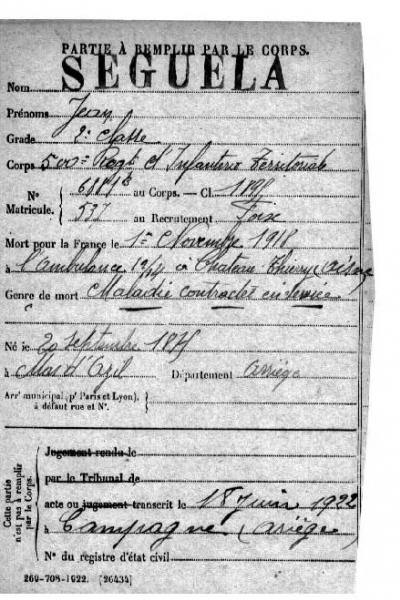 PARTIE À REMPLIR PAR LE CORPS.
SEGUELA
Nom
Prénoms Jean
Grade 2e classe
Corps 500e Regt d'Infanterie Territoriale
N° Matricule. { au Corps. — Cl.
537 au Recrutement Foix
Mort pour la France le 1er Novembre 1918
à l'ambulance 12/14 à Chateau Thierry (Aisne
Genre de mort Maladie contractée en service
Né le 20 septembre
à Mas d'Azil Département Ariège
Arrt municipal (pr Paris et Lyon), à défaut rue et N°.
Cette partie n'est pas à remplir par le Corps.
Jugement rendu le
par le Tribunal de
acte ou jugement transcrit le 18 juin 1922
à Campagne (Ariège)
N° du registre d'état civil
269-708-1922. (26434)